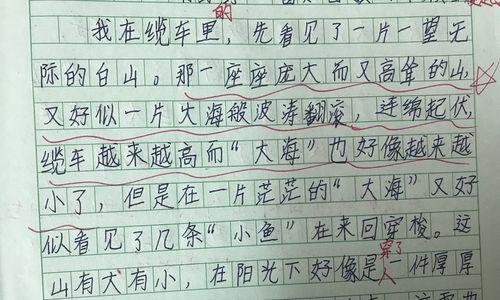 我在缆车里的，先看见了一片一望无
际的白山。那一座座庞大而又高耸的山
又好似一片大海般波涛翻滚，连绵起伏，
缆车越来越高而“大海”也好像越来越
小了，但是在一片茫茫的“大海”又好
似看见了几条“小鱼”在来回穿梭。这
山有大有小，在阳光下好像是穿了一件厚厚